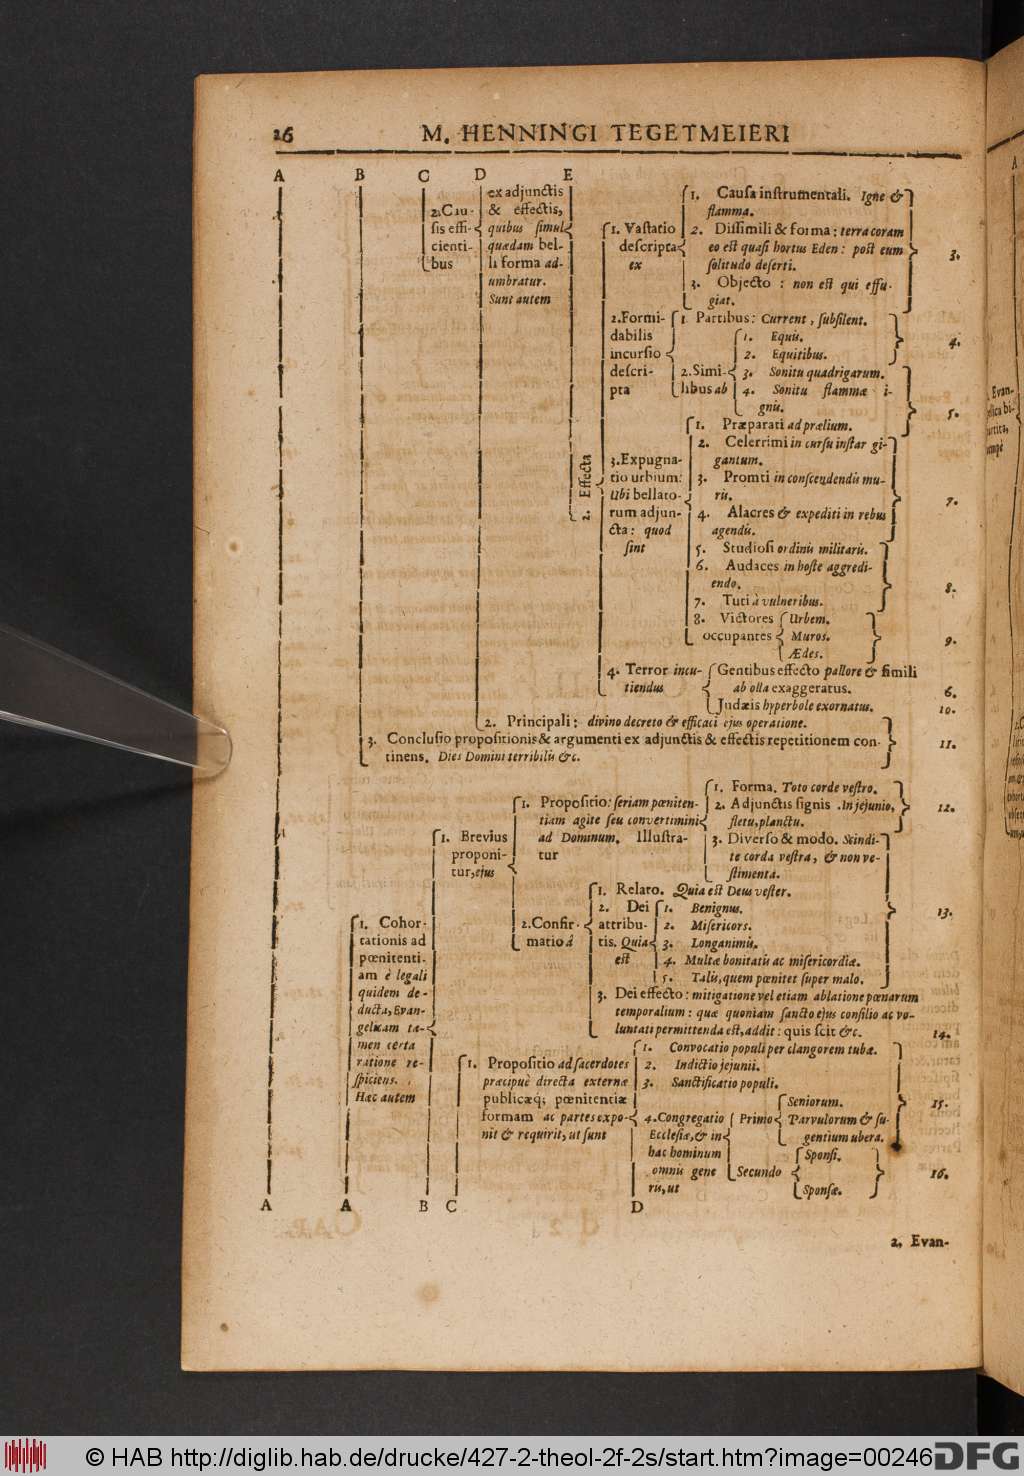 26 M. HENNINGI TEGETMEIERI
A B C D E
2. Cau-
sis effi-
cienti-
bus
ex adjunctis
& effectis,
quibus simul
quædam bel-
li forma ad-
umbratur.
Sunt autem
2. Effecta
1. Vastatio
descripta
ex
1. Causa instrumentali. Igne &
flamma.
2. Dissimili & forma: terra coram
eo est quasi hortus Eden: post eum
solitudo deserti.
3. Objecto: non est qui effu-
giat.
3.
2. Formi-
dabilis
incursio
descri-
pta
1. Partibus: Current, subsilent.
2. Simi-
libus ab
1. Equis.
2. Equitibus.
4.
3. Sonitu quadrigarum.
4. Sonitu flammæ i-
gnis.
5.
3. Expugna-
tio urbium:
Ubi bellato-
rum adjun-
cta: quod
sint
1. Præparati ad prælium.
2. Celerrimi in cursu instar gi-
gantum.
3. Promti in conscendendis mu-
ris.
4. Alacres & expediti in rebus
agendis.
7.
5. Studiosi ordinis militaris.
6. Audaces in hoste aggredi-
endo.
7. Tuti à vulneribus.
8.
8. Victores
occupantes
Urbem.
Muros.
Ædes.
9.
4. Terror incu-
tiendus
Gentibus effecto pallore & simili
ab olla exaggeratus.
6.
Judæis hyperbole exornatus.
10.
2. Principali: divino decreto & efficaci ejus operatione.
3. Conclusio propositionis & argumenti ex adjunctis & effectis repetitionem con-
tinens. Dies Domini terribilis &c.
11.
1. Cohor-
tationis ad
pœnitenti-
am è legali
quidem de-
ducta, Evan-
gelicam ta-
men certa
ratione re-
spiciens.
Hæc autem
1. Brevius
proponi-
tur, ejus
1. Propositio: seriam pœniten-
tiam agite seu convertimini
ad Dominum. Illustra-
tur
1. Forma. Toto corde vestro.
2. Adjunctis signis. In jejunio,
fletu, planctu.
12.
3. Diverso & modo. Scindi-
te corda vestra, & non ve-
stimenta.
2. Confir-
matio à
1. Relato. Quia est Deus vester.
2. Dei
attribu-
tis. Quia
est
1. Benignus.
2. Misericors.
3. Longanimis.
4. Multæ bonitatis ac misericordiæ.
5. Talis, quem pœnitet super malo.
13.
3. Dei effecto: mitigatione vel etiam ablatione pœnarum
temporalium: quæ quoniam sancto ejus consilio ac vo-
luntati permittenda est, addit: quis scit &c.
14.
1. Propositio ad sacerdotes
præcipuè directa externæ
publicæq; pœnitentiæ
formam ac partes expo-
nit & requirit, ut sunt
1. Convocatio populi per clangorem tubæ.
2. Indictio jejunii.
3. Sanctificatio populi.
4. Congregatio
Ecclesiæ, & in
hac hominum
omnis gene
ris, ut
Primo
Seniorum.
Parvulorum & su-
gentium ubera.
15.
Secundo
Sponsi.
Sponsæ.
16.
A A B C D
2. Evan-
© HAB http://diglib.hab.de/drucke/427-2-theol-2f-2s/start.htm?image=00246
DFG